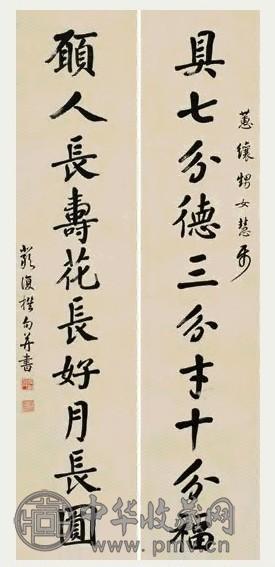 蕙纕甥女慧屬
具七分德三分才十分福
願人長壽花長好月長圓
嚴復撰句并書
中华收藏网
www.pmv.cn